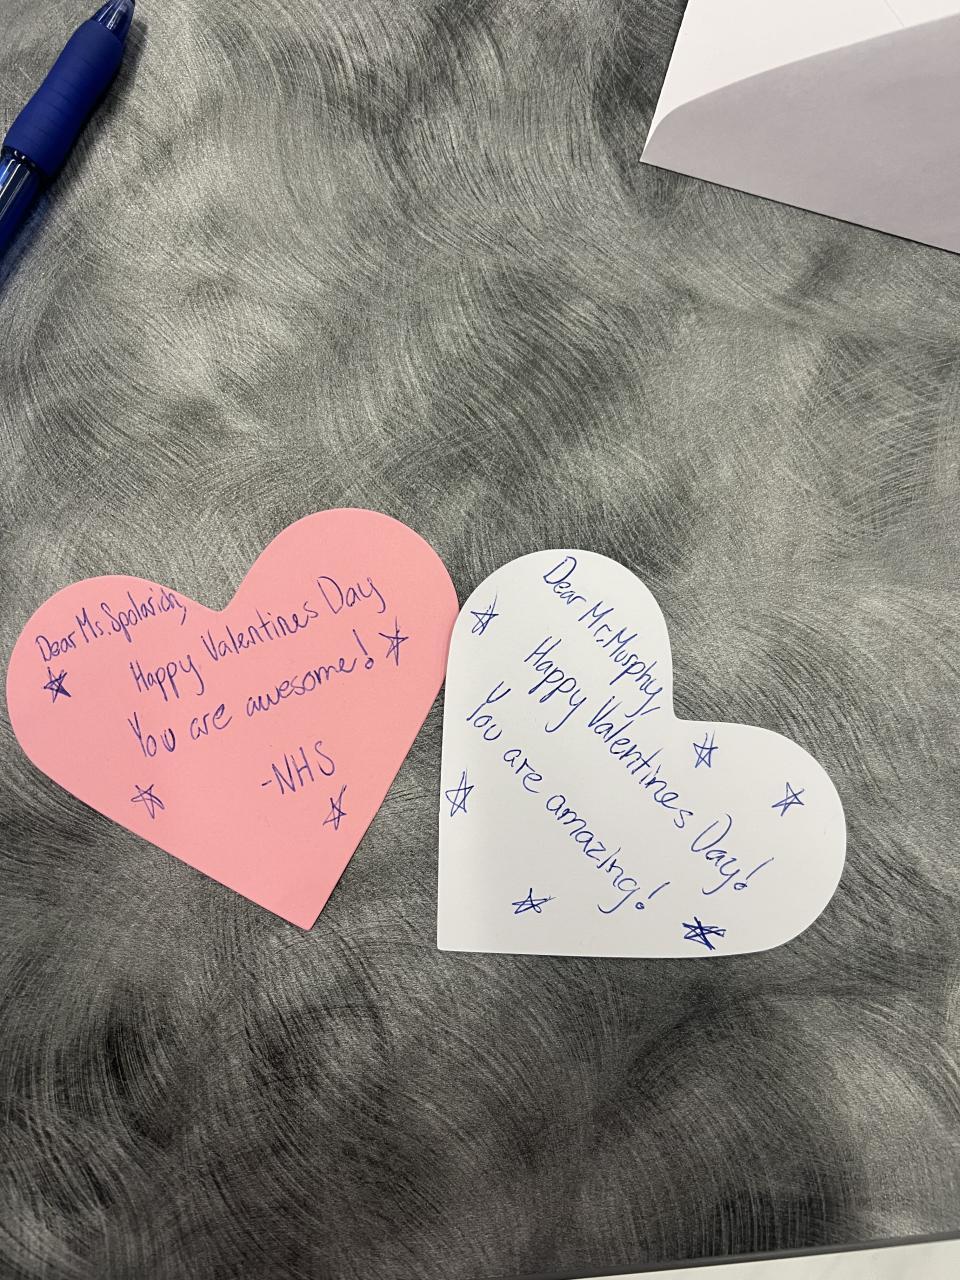 Dear Ms. Spolarich,
Happy Valentines Day
You are awesome!
-NHS
Dear Mr. Murphy,
Happy Valentines Day!
You are amazing!